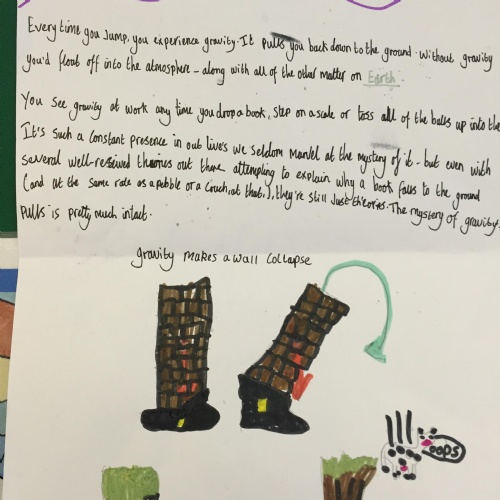 Every time you jump, you experience gravity. It pulls you back down to the ground. Without gravity
you'd float off into the atmosphere - along with all of the other matter on Earth.
You see gravity at work any time you drop a book, step on a scale or toss all of the balls up into the
It's such a constant presence in our lives we seldom marvel at the mystery of it - but even with
several well-received theories out there attempting to explain why a book falls to the ground
(and at the same rate as a pebble or a couch, at that.), they're still just theories. The mystery of gravity's
pulls is pretty much intact.
gravity makes a wall collapse
oops